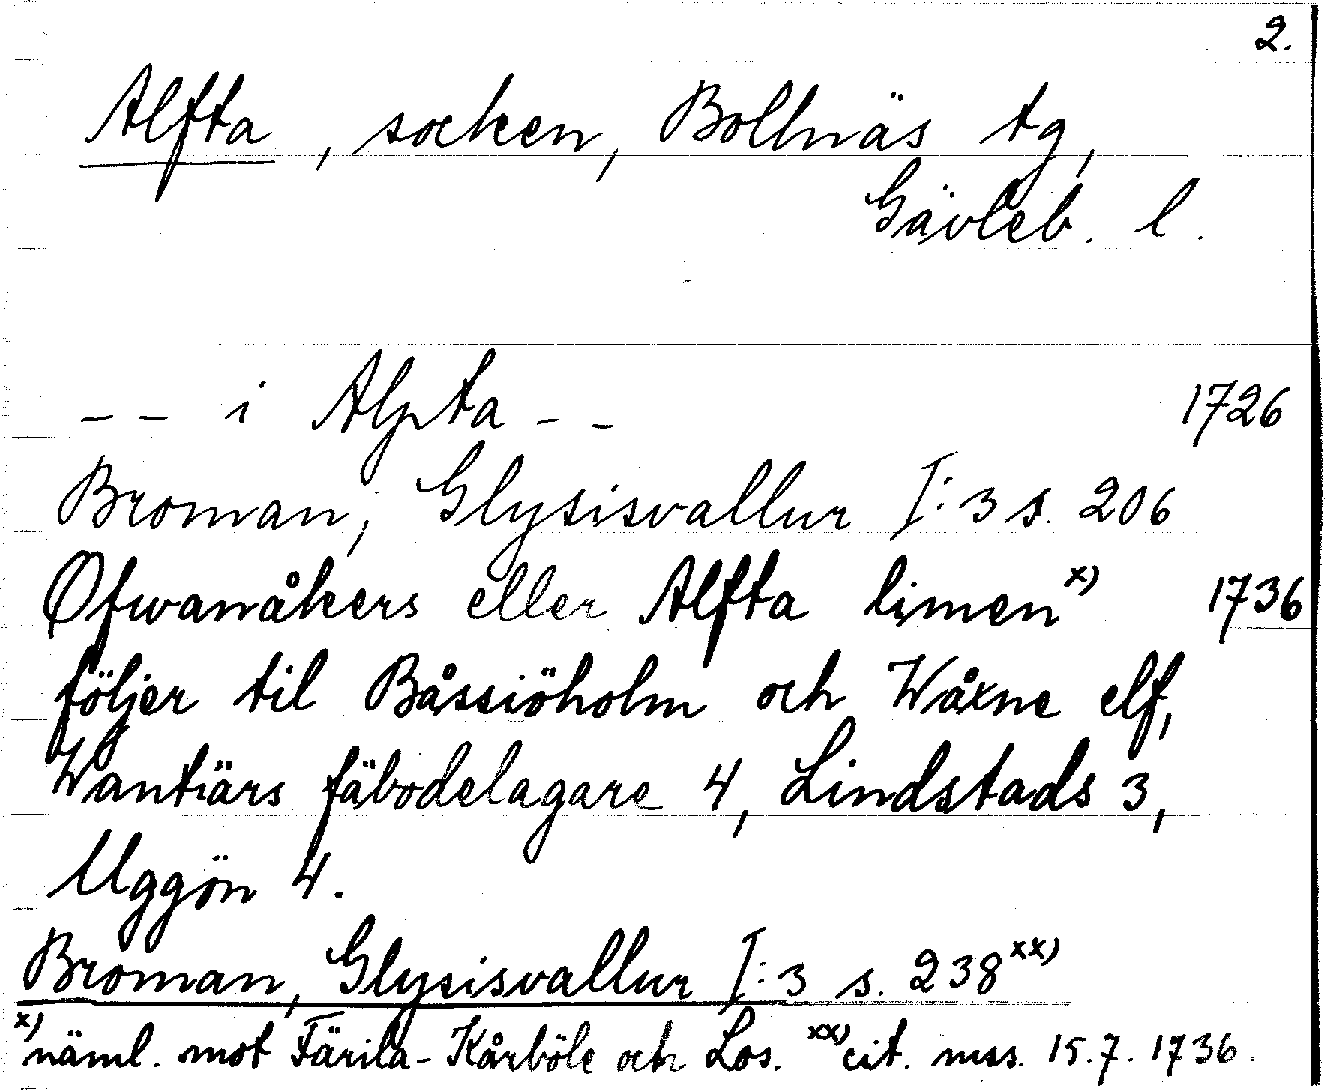 2.
Alfta, socken, Bollnäs tg,
Gävleb. l.
-- i Alpta -- 1726
Broman, Glysisvallur I:3 s. 206
Ofwanåkers eller Alfta limen x) 1736
följer til Båssiöholm och Wåxne elf,
Wantiärs fäbodelagare 4, Lindstads 3,
Uggön 4.
Broman, Glysisvallur I:3 s. 238 xx)
x) näml. mot Färila-Kårböle och Los. xx) cit. mss. 15.7.1736.